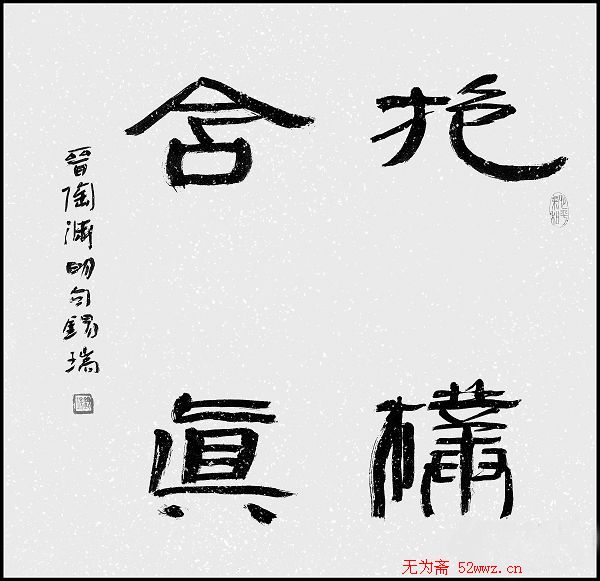 抱樸
含眞
晉陶淵明句錫瑞
无为斋 52wwz.cn